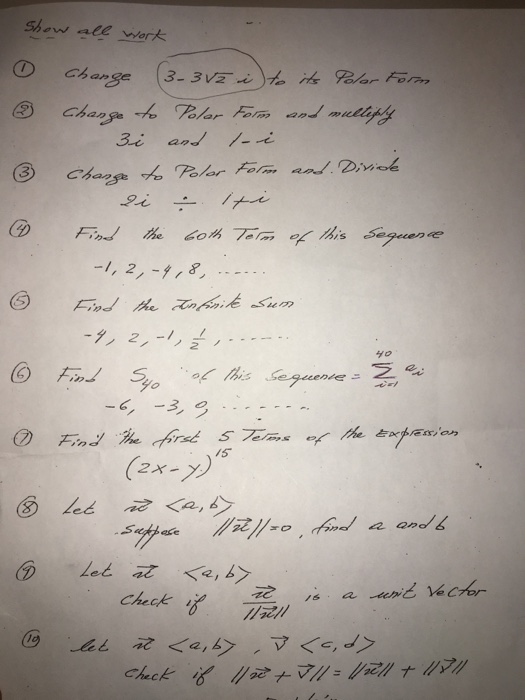 Show all work
① Change 3-3√2 i to its Polar Form
② Change to Polar Form and multiply
3i and 1-i
③ Change to Polar Form and Divide
2i ÷ 1+i
④ Find the 60th Term of this Sequence
-1, 2, -4, 8, ......
⑤ Find the Infinite Sum
-4, 2, -1, 1/2, .......
⑥ Find S₄₀ of this Sequence = 40 Σ i=1 aᵢ
-6, -3, 0, ........
⑦ Find the first 5 Terms of the Expression
(2x-y)¹⁵
⑧ Let u⃗ <a,b>
Suppose ||u⃗||=0, find a and b
⑨ Let u⃗ <a,b>
Check if u⃗/||u⃗|| is a unit Vector
⑩ let u⃗ <a,b>, v⃗ <c,d>
Check if ||u⃗ + v⃗|| = ||u⃗|| + ||v⃗||